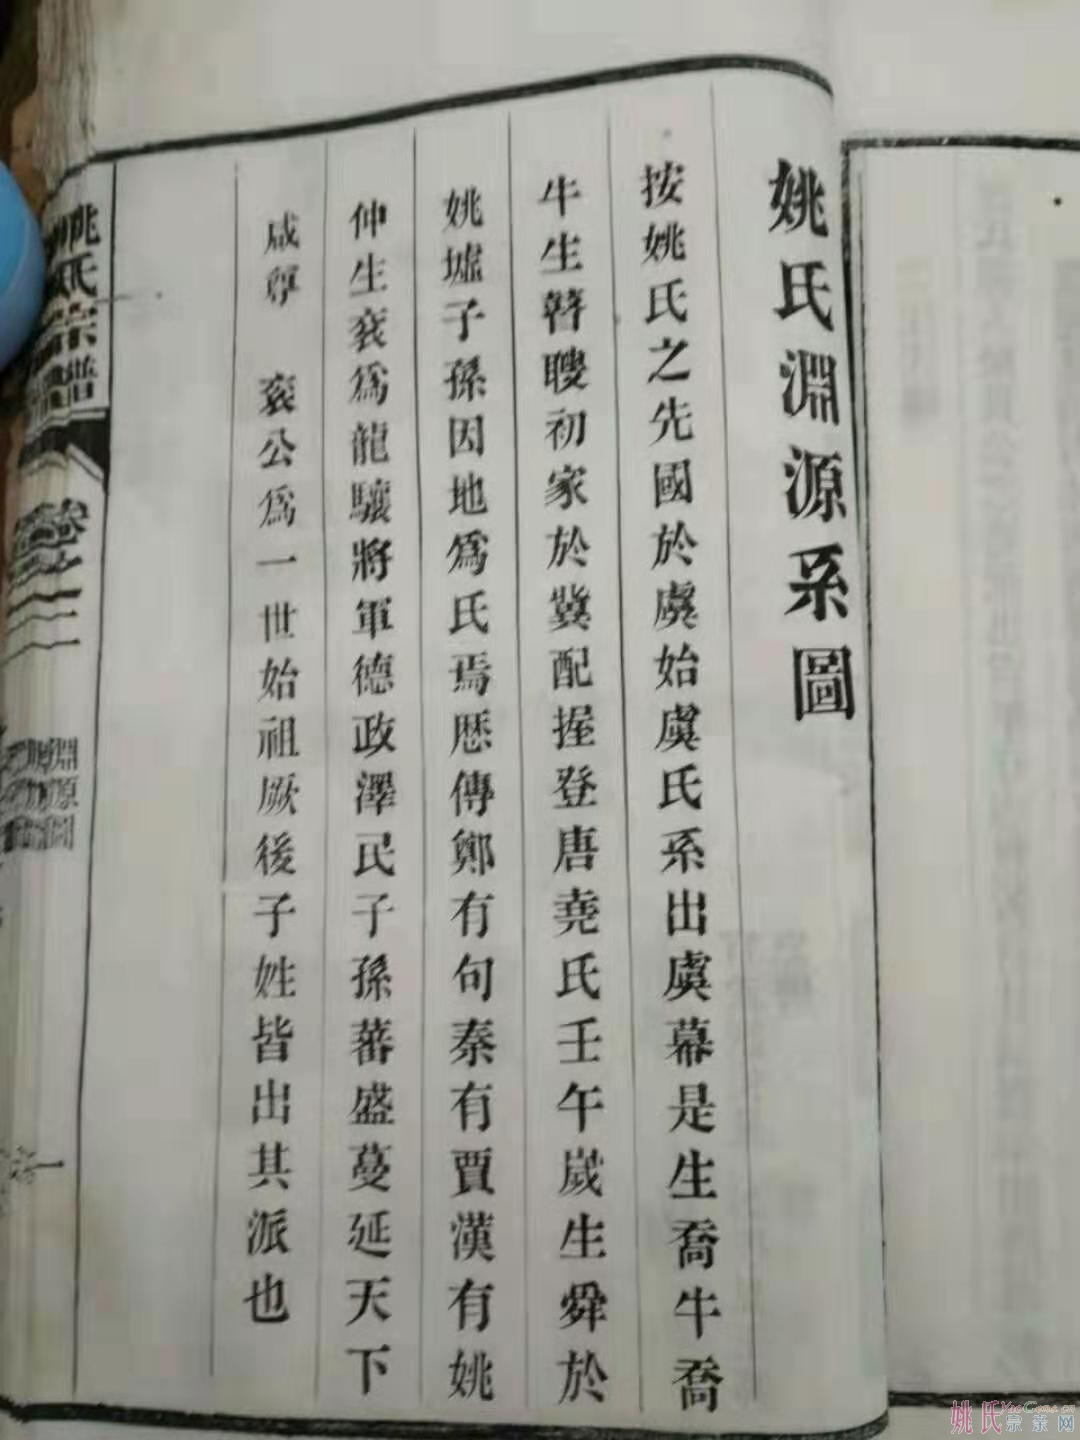 姚氏淵源系圖
按姚氏之先國於虞始虞氏系出虞幕是生喬牛喬
牛生瞽瞍初家於冀配握登唐堯氏壬午歲生舜於
姚墟子孫因地爲氏焉歷傳鄭有句秦有賈漢有姚
仲生袞爲龍驤將軍德政澤民子孫蕃盛蔓延天下
咸尊 袞公爲一世始祖厥後子姓皆出其派也
姚氏宗譜
卷之二
淵源圖
一
姚氏宗亲网
YaoCona.cn